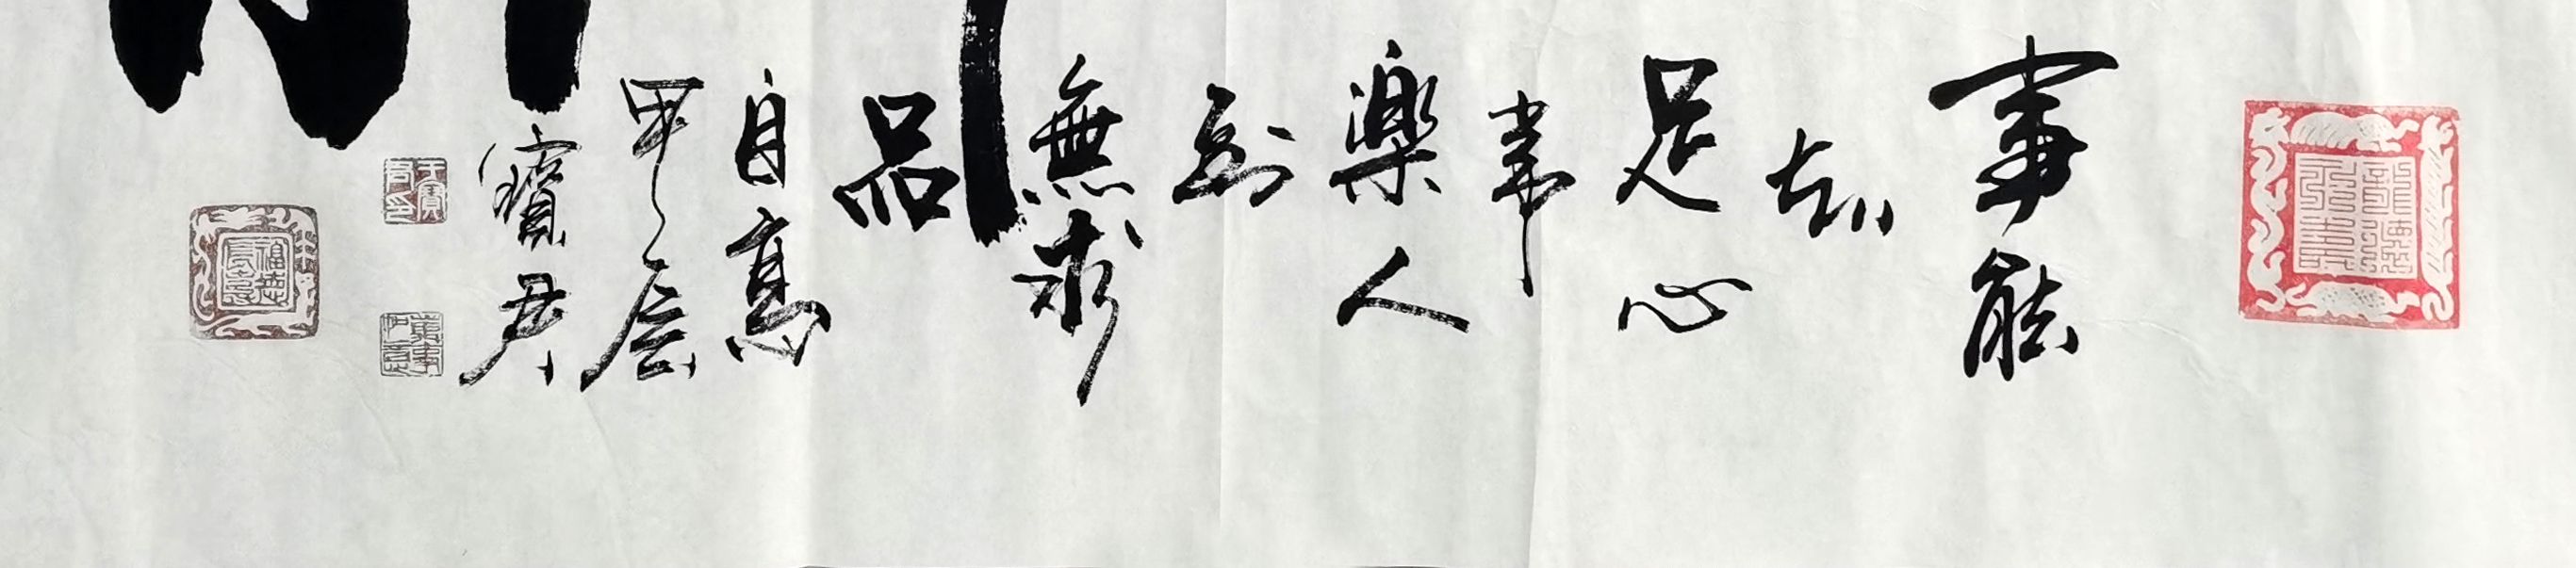 事能
知
足心
常
樂人
到
無求
品
自高
甲辰
寶君